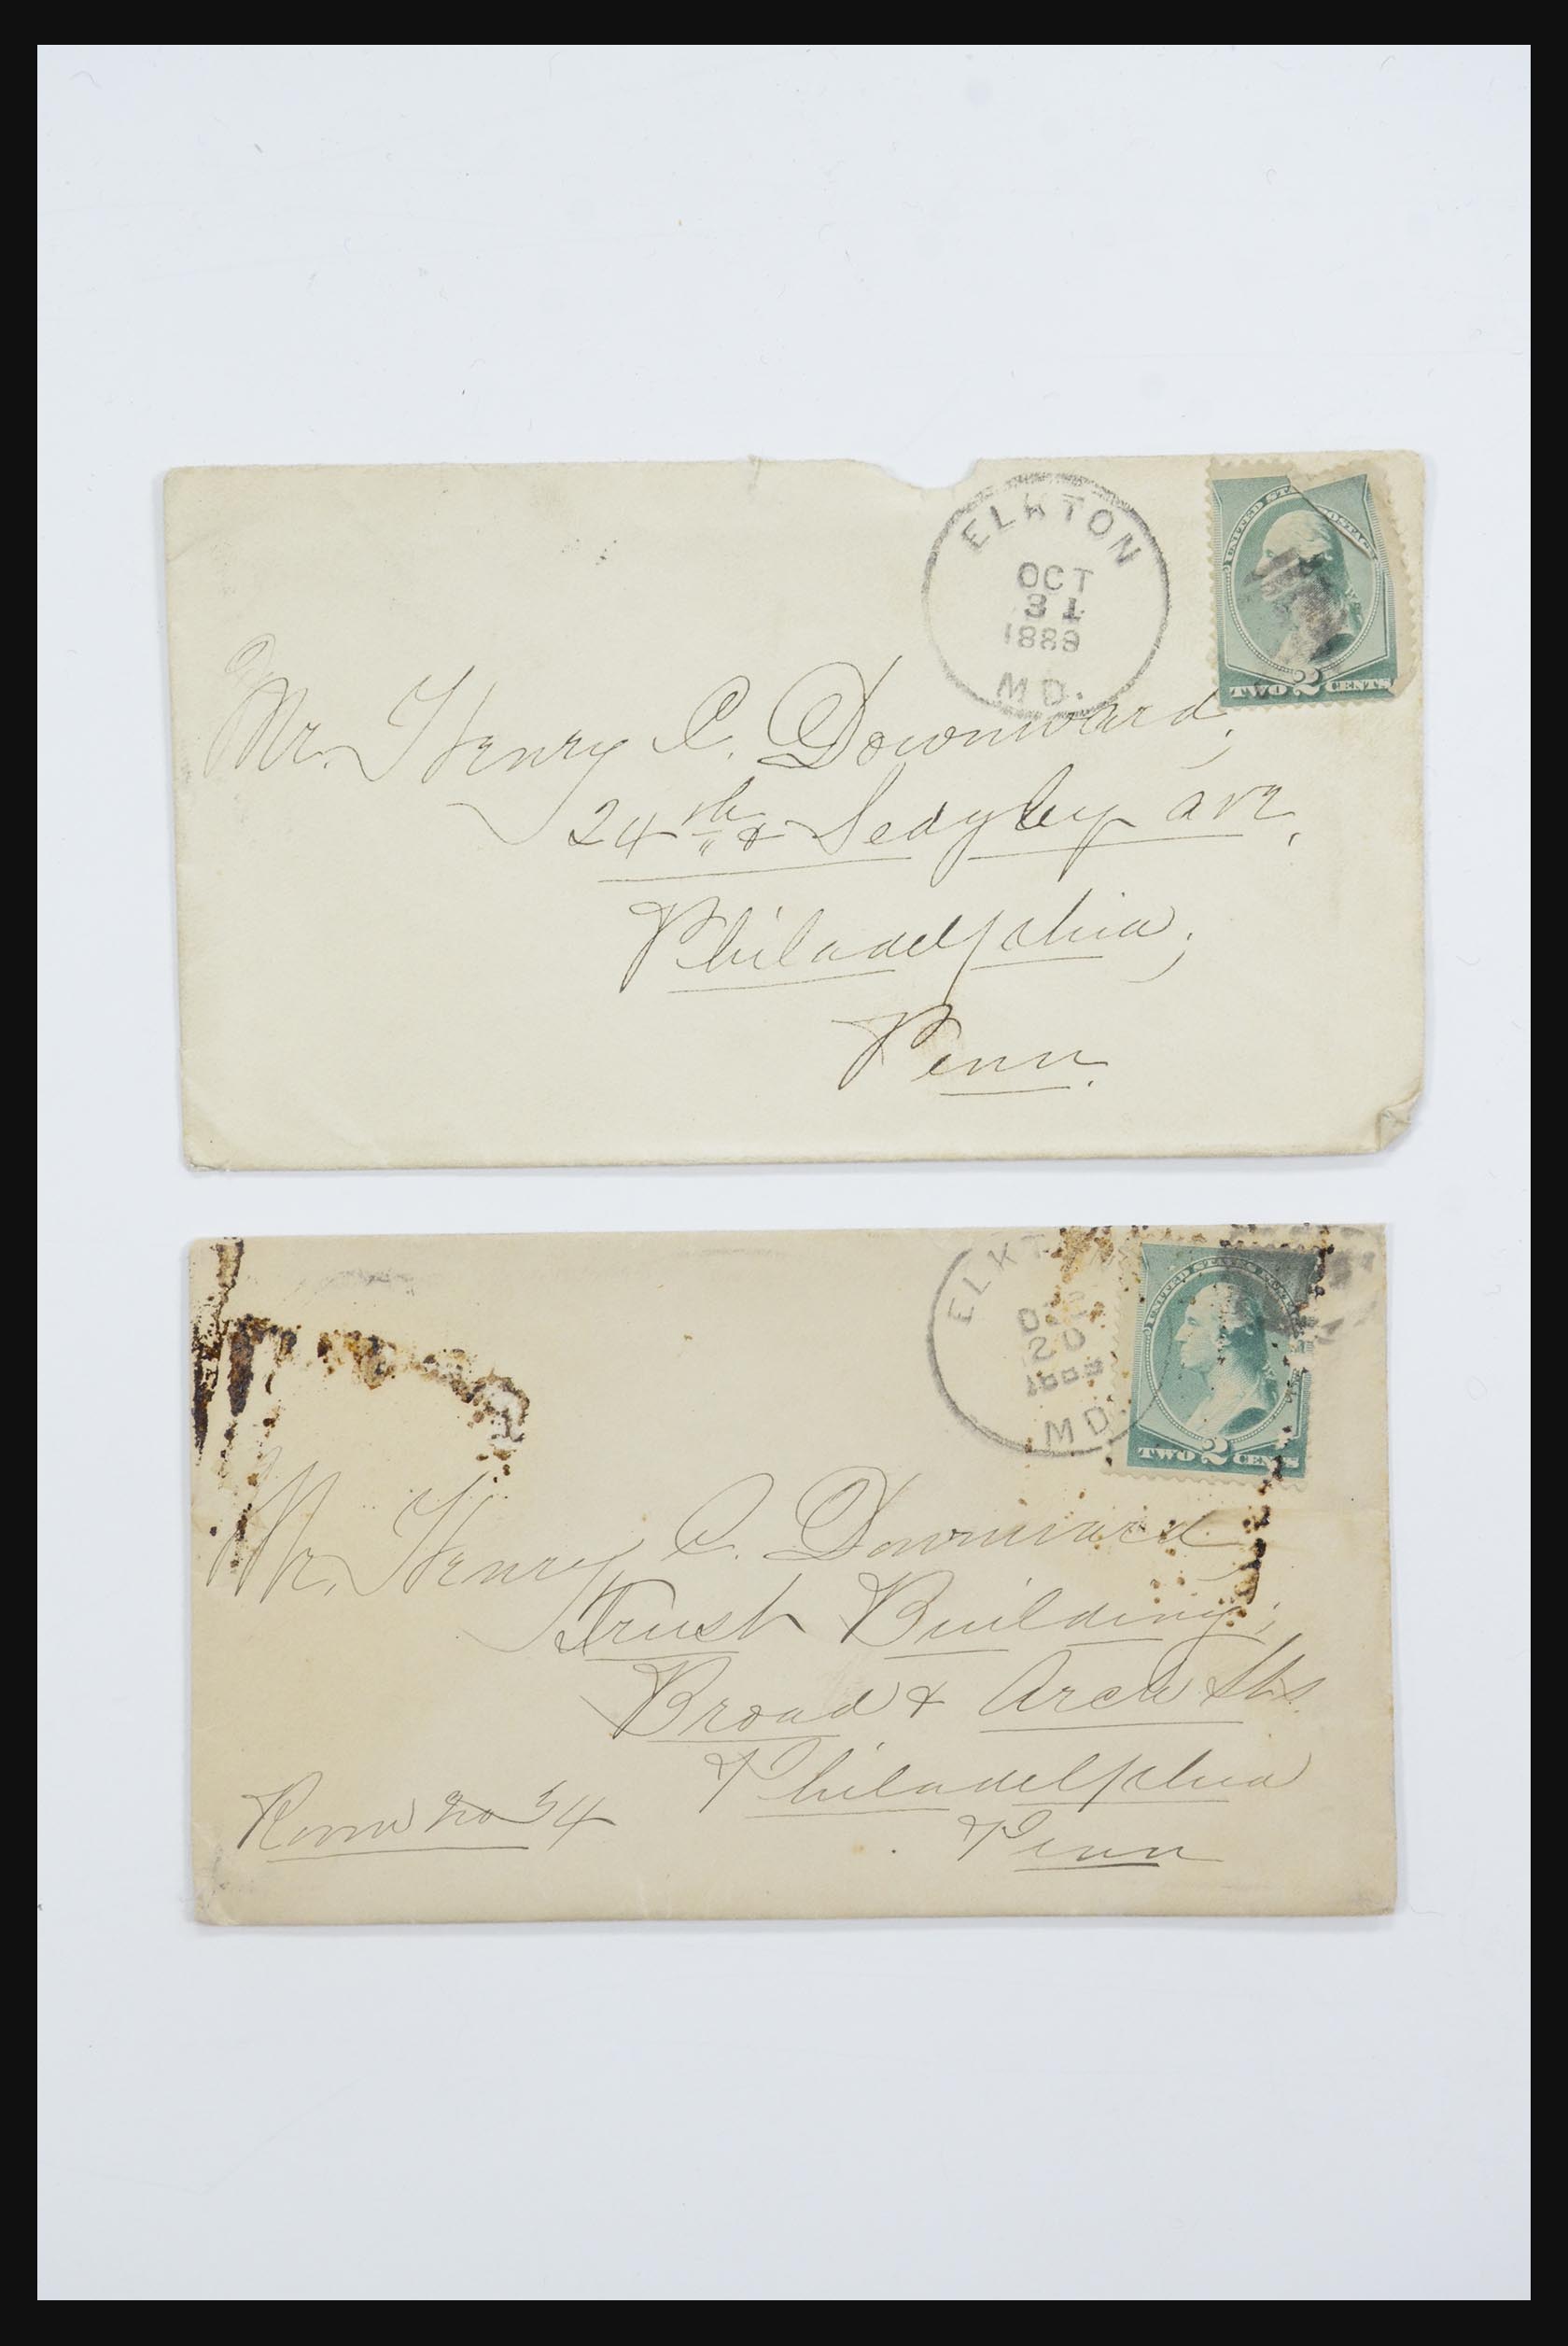 ELKTON
OCT
31
1889
MD.
UNITED STATES POSTAGE
TWO 2 CENTS
Mr. Henry C. Downward,
24th & Sedgley ave,
Philadelphia;
Penn.
ELKTON
DEC
20
MD.
UNITED STATES POSTAGE
TWO 2 CENTS
Mr. Henry C. Downward,
Trust Building;
Broad & Arch Sts.
Philadelphia
Room no 34
Penn